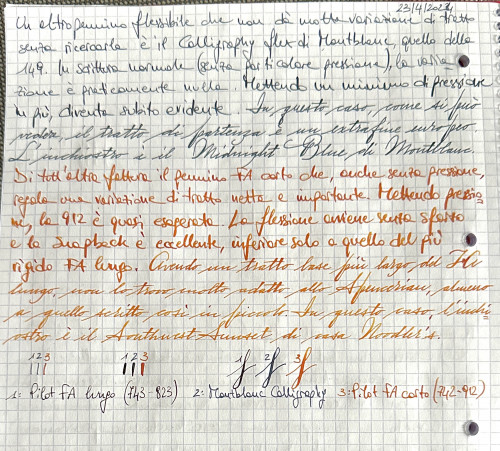 23/4/2024
Un altro pennino flessibile che non dà molta variazione di tratto
senza ricercarla è il Calligraphy flex di Montblanc, quello della
149. In scrittura normale (senza particolare pressione), la varia
zione è praticamente nulla. Mettendo un minimo di pressione
in più, diventa subito evidente. In questo caso, come si può
vedere, il tratto di partenza è un extrafine europeo.
L'inchiostro è il Midnight Blue di Montblanc.
Di tutt'altra fattura il pennino FA corto che, anche senza pressione,
regala una variazione di tratto netta e importante. Mettendo pressio
ne, la 912 è quasi esagerata. La flessione avviene senza sforzo
e lo snapback è eccellente, inferiore solo a quello del più
rigido FA lungo. Avendo un tratto base più largo del FA
lungo, non lo trovo molto adatto allo Spencerian, almeno
a quello scritto così in piccolo. In questo caso, l'inchi
ostro è il Southwest Sunset di casa Noodler's.
1 2 3 1 2 3 1 f 2 f 3 f
1: Pilot FA lungo (743-823) 2: Montblanc Calligraphy 3: Pilot FA corto (742-912)